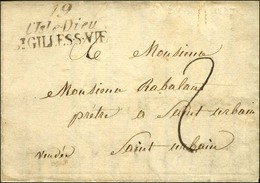 19
L'Isle-Dieu
St GILLES-S-VIE
Monsieur
Monsieur Rabalan
prêtre a Saint urbain
vendée Saint urbain